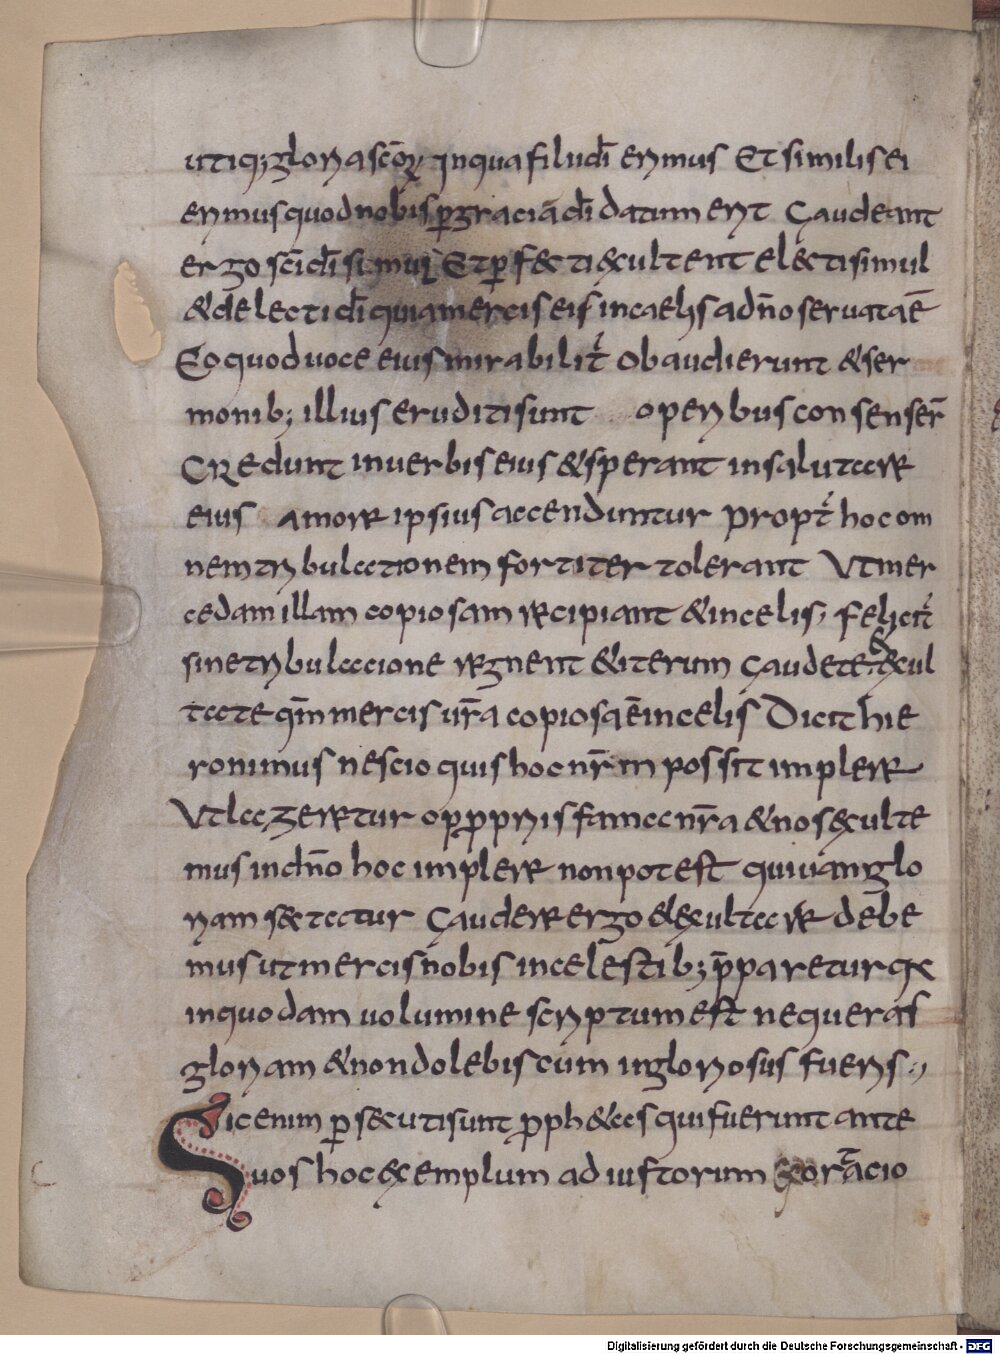 utiq; gloria scōrꝫ Inqua filii dī erimus Et similis ei
erimus quod nobis ꝑ graciā dī datum erit Gaudeant
ergo sc̄i dī simul Et ꝑfecti exultent electi simul
& delecti dī quia mercis eis incaelis ad n̄o seruata ē
Eo quod uoce eius mirabilit̄ obaudierunt & ser
monib; illius eruditi sunt operibus consenser̄
Credunt in uerbis eius & sperant in salutare
eius amore ipsius accenduntur propt̄ hoc om
nem tribulationem fortiter tolerant Ut mer
cedam illam copiosam recipiant & in celis, felicit̄
sine tribulacione regnent & iterum Gaudete & exul
tate qm̄ mercis ur̄a copiosa ē in celis Dicit hie
ronimus nescio quis hoc nr̄m possit implere
Ut laceretur opp̱ropriis fama nr̄a & nos exulte
mus in dn̄o hoc implere non potest qui uanā glo
riam sectatur Gaudere ergo & exultare debe
mus ut mercis nobis in celestib; p̄paretur qa
in quodam uolumine scriptum est ne queras
gloriam & non dolebis cum ingloriosus fueris
Sic enim ꝑsecuti sunt ꝓph&as qui fuerunt ante
uos hoc exemplum ad iustorum exoratacio
Digitalisierung gefördert durch die Deutsche Forschungsgemeinschaft - DFG